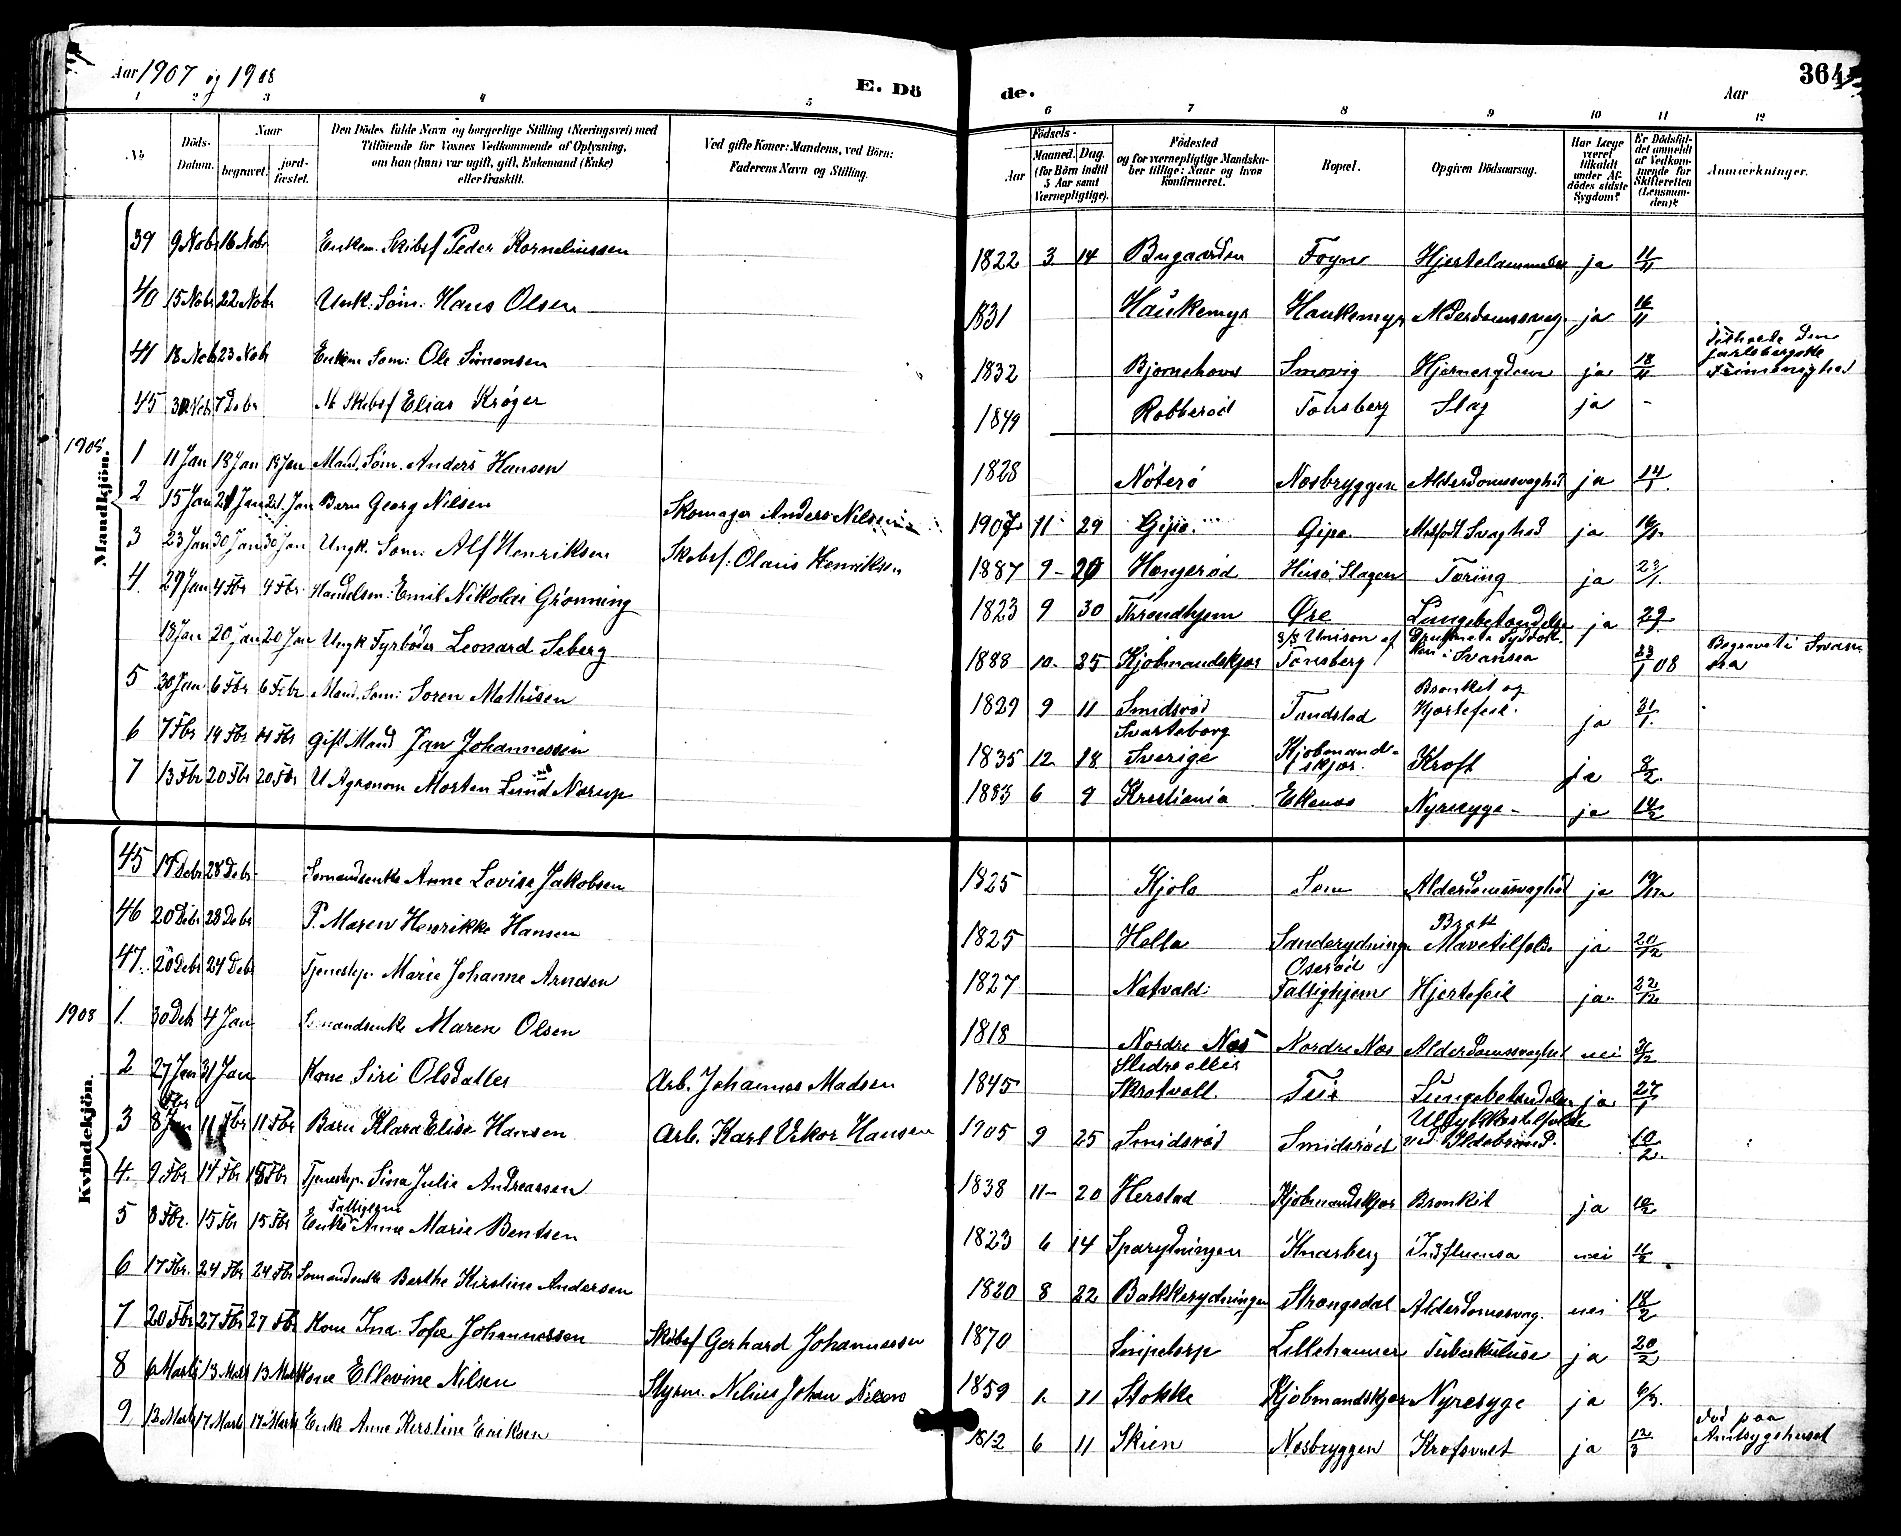 Aar 1907 og 1908
E. Dö de.
364
Aar
1 2 3 4 5 6 7 8 9 10 11 12
No
Döds-Datum.
Naar begravet. jord-fæstet.
Den Dödes fulde Navn og borgerlige Stilling (Næringsvei) med Tilföiende for Voxnes Vedkommende af Oplysning, om han (hun) var ugift, gift, Enkemand (Enke) eller fraskilt.
Ved gifte Koner: Mandens, ved Börn: Faderens Navn og Stilling.
Födsels- Aar Maaned. Dag. (for Börn indtil 5 Aar samt Værnepligtige).
Födested og for værnepligtige Mandskaber tillige: Naar og hvor konfirmeret.
Bopæl.
Opgiven Dödsaarsag.
Har Læge været tilkaldt under Afdödes sidste Sygdom?
Er Dödsfaldet anmeldt af Vedkommende for Skifteretten (Lensmanden)?
Anmærkninger.
Mandkjön.
39 9 Nobr 16 Nobr Enkem. Skibsf Peder Korneliussen 1822 3 14 Bugaarden Foyn Hjertelammelse ja 11/11
40 15 Nobr 22 Nobr Unk. Søm. Hans Olsen 1831 Haukemyr Haukemyr Alderdomssvag. ja 16/11
41 18 Nobr 23 Nobr Enkem Søm: Ole Simensen 1832 Bjørnehove Smovig ja 18/11
45 7 Debr M Skibsf Elias Krøger 1849 Robberød Tønsberg Slag ja -
1908
1 11 Jan 18 Jan 18 Jan Mand. Søm. Anders Hansen 1828 Nøterø Næsbryggen Alderdomssvaghed ja 14/1
2 15 Jan 21 Jan 21 Jan Barn Georg Nilsen Skomager Anders Nilsen 1907 11 29 Gipø. Gipø. Medfødt Svaghed ja 16/1.
3 23 Jan 30 Jan 30 Jan Ungk. Søm: Alf Henriksen Skibsf: Olaus Henriksen 1887 9 - 20 Hengerød Husø Slagen Tæring ja 23/1.
4. 29 Jan 4 Fbr 4 Fbr. Handelsm: Emil Nikolai Grønning 1823 9 30 Throndhjem Øre Lungebetændelse ja 29.
18 Jan 20 Jan 20 Jan Ungk Fyrbøder Leonard Seberg 1888 10. 25 Kjøbmandskjær S/S Unison af Tønsberg Druknet i Svansea 23/1 08 Begravet i Svansea
5 30 Jan 6 Fbr 6 Febr Mand. Søm: Søren Mathisen 1829 9 11 Smidsrød Tandstad Bronkit og Hjærtefeil. ja 31/1.
6 7 Fbr 14 Fbr 14 Fbr Gift Mand Jan Johannessen 1835 12 18 Svarteborg Sverige Kjøbmandskjær. Kræft ja 8/2.
7 13 Fbr 20 Fbr 20 Fbr U Agronom Morten Lund Nærup 1883 6 9 Kristiania Ekenes Nyresyge - ja 14/2
Kvindekjön.
45 17 Debr 28 Debr Sømandsenke Anne Lovise Jakobsen 1825 Kjøle Sem Alderdomssvaghed ja 19/12
46 20 Debr 28 Debr P. Maren Henrikke Hansen 1825 Hella Sanderydningen Brøtt Mavetilfælde ja 20/12
47. 20 Debr 24 Debr Tjenestep. Marie Johanne Arnesen 1827 Natvald: Oserød Fattighjem Hjertefeil ja. 22/12
1908
1. 30 Debr 4 Jan Sømandsenke Maren Olsen 1818 Nordre Næs Nordre Næs Alderdomssvaghed nei 31/12
2 27 Jan 31 Jan Kone Siri Olsdatter Arb. Johannes Madsen 1845 Skrotvoll. Teie Lungebetændelse ja. 27/1
3 8 Fbr 11 Fbr 11 Fbr Barn Klara Elise Hansen Arb. Karl Viktor Hansen 1905 9 25 Smidsrød Smidsrød Ulykkestilfælde ved Ildebrand. 10/2.
4. 9 Fbr 14 Fbr Tjenestep. Sina Julie Andreassen 1838 11 - 20 Herstad Kjøbmandskjær Bronkit ja 10/2
5 8 Fbr. 15 Fbr 15 Fbr Fattiglem Enke Anne Marie Bentsen 1823 6 14 Sparydningen Knarberg Influensa nei 11/2
6 17 Fbr. 24 Fbr 24 Fbr Sømandsenke Berthe Kirstine Andersen 1820 8 22 Bakkerydningen Strængsdal Alderdomssvag. nei 18/2
7 20 Fbr 27 Fbr 27 Fbr Kone Ina. Sofie Johannessen Skibsf Gerhard Johannessen 1870 Snipetorp Lillehammer Tuberkulose ja 20/2
8 6 Marts 13 Mats 13 Mats Kone Ellevine Nilsen Styrm. Nilius Johan Nilsen 1859 1. 11 Stokke Kjøbmandskjær Nyresyge ja 6/3.
9 12 Marts 17 Marts 17 Marts Enke Anne Kirstine Eriksen 1812 6 11 Skien Næsbryggen Kræfsvulst ja 12/3 død paa Amtsygehuset